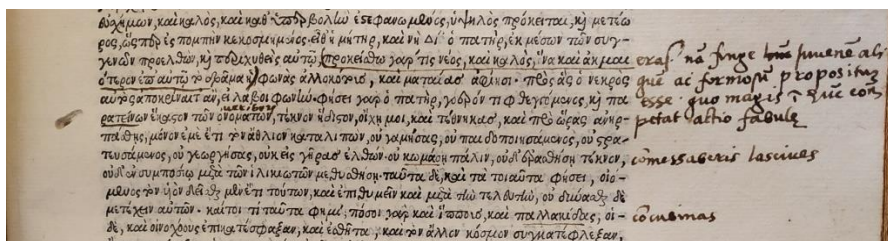 εὐσχήμων, καὶ καλὸς, καὶ καθ' ὑπερβολὴν ἐστεφανωμένος, ὑψηλὸς πρόκειται, καὶ μετέω
ρος, ὥσπερ ἐς πομπὴν κεκοσμημένος. εἶθ' ἡ μήτηρ, καὶ νὴ Δί' ὁ πατὴρ, ἐκ μέσων τῶν συγ-
γενῶν προελθὼν, καὶ περιχυθεὶς αὐτῷ, (προκείσθω γάρ τις νέος, καὶ καλὸς, ἵνα καὶ ἀκμαι
ότερον ἐπ' αὐτῷ τὸ δρᾶμα ᾖ) φωνὰς ἀλλοκότους, καὶ ματαίας ἀφίησι. πρὸς ἃς ὁ νεκρὸς
αὐτὸς ἀποκρίναιτ' ἂν, εἰ λάβοι φωνήν. φήσει γὰρ ὁ πατὴρ, γοερόν τι φθεγγόμενος, καὶ πα
ρατείνων ἕκαστον τῶν ὀνομάτων, τέκνον ἥδιστον, οἴχῃ μοι, καὶ τέθνηκας, καὶ πρὸ ὥρας ἀνηρ-
πάσθης, μόνον ἐμὲ ἔτι τὸν ἄθλιον καταλιπὼν, οὐ γαμήσας, οὐ παιδοποιησάμενος, οὐ στρα-
τευσάμενος, οὐ γεωργήσας, οὐκ εἰς γῆρας ἐλθών. οὐ κωμάσῃ πάλιν, οὐδ' ἐρασθήσῃ τέκνον,
οὐδ' ἐν συμποσίῳ μετὰ τῶν ἡλικιωτῶν μεθυσθήσῃ. ταῦτα δὲ, καὶ τὰ τοιαῦτα φήσει, οἰό-
μενος τὸν υἱὸν δεῖσθαι μὲν ἔτι τούτων, καὶ ἐπιθυμεῖν καὶ μετὰ τὴν τελευτὴν, οὐ δύνασθαι δὲ
μετέχειν αὐτῶν. καίτοι τί ταῦτα φημί; πόσοι γὰρ καὶ ἵππους, καὶ παλλακίδας, οἱ-
δὲ, καὶ οἰνοχόους ἐπικατέσφαξαν, καὶ ἐσθῆτα, καὶ τὸν ἄλλον κόσμον συγκατέφλεξαν,
juvenē ali
quē ac formosū propositū
esse quo magis
petat actio fabulę
cōmessaberis lascives
cōcubinas